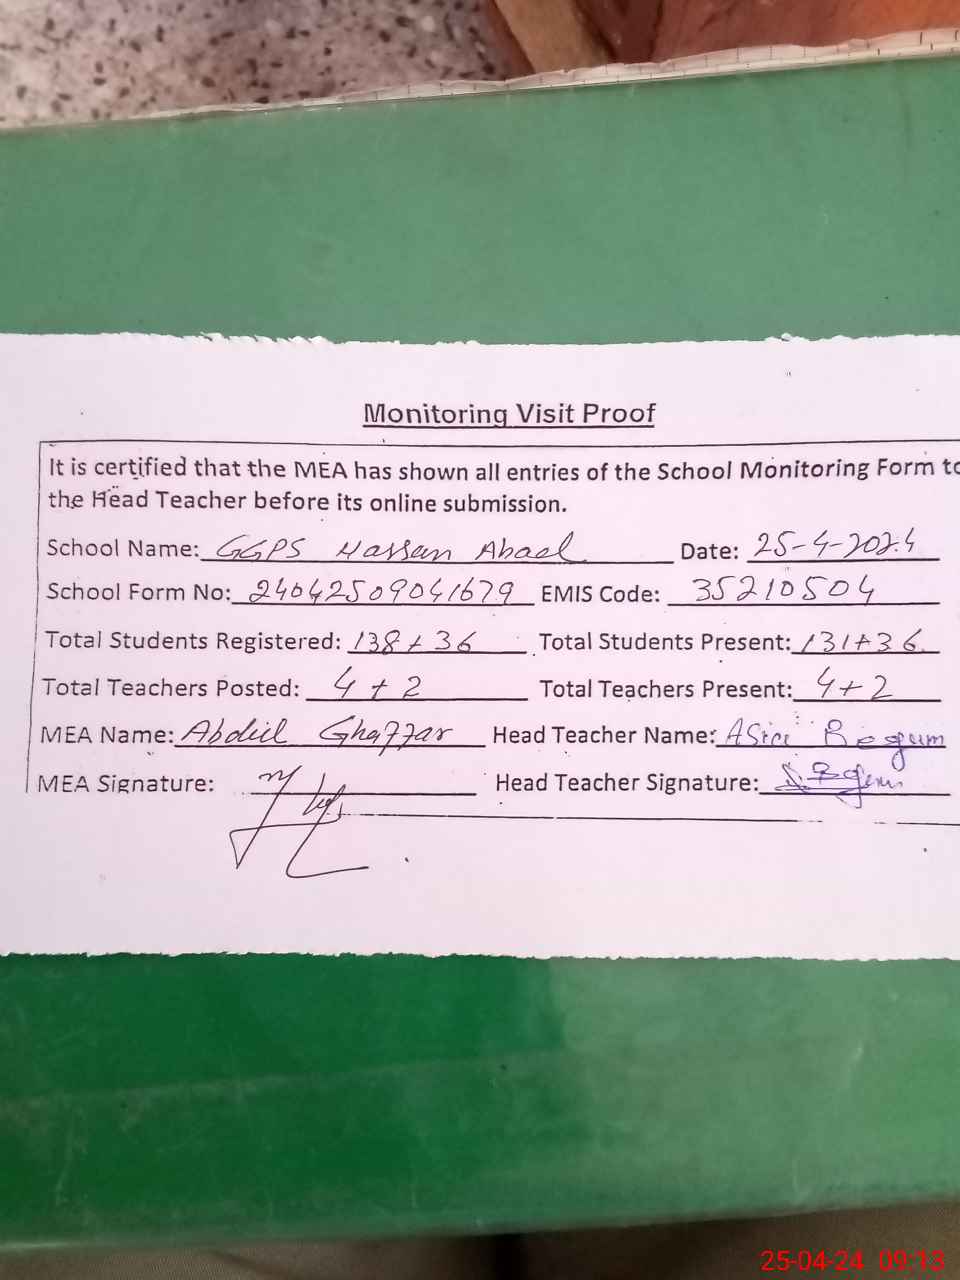 Monitoring Visit Proof
It is certified that the MEA has shown all entries of the School Monitoring Form to
the Head Teacher before its online submission.
School Name: GGPS Hassan Abael Date: 25-4-2024
School Form No: 24042509041679 EMIS Code: 35210504
Total Students Registered: 138+36 Total Students Present: 131+36
Total Teachers Posted: 4+2 Total Teachers Present: 4+2
MEA Name: Abdul Ghaffar Head Teacher Name: Begum
MEA Signature: Head Teacher Signature:
25-04-24 09:13